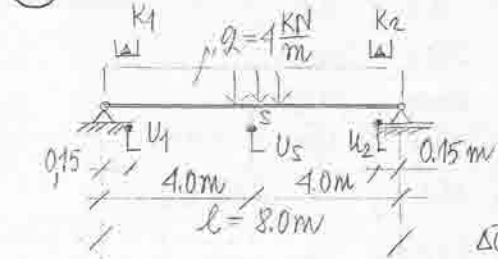 K1 K2
q = 4 KN/m
S
U1 Us U2
0,15 0.15 m
4.0m 4.0m
l = 8.0m